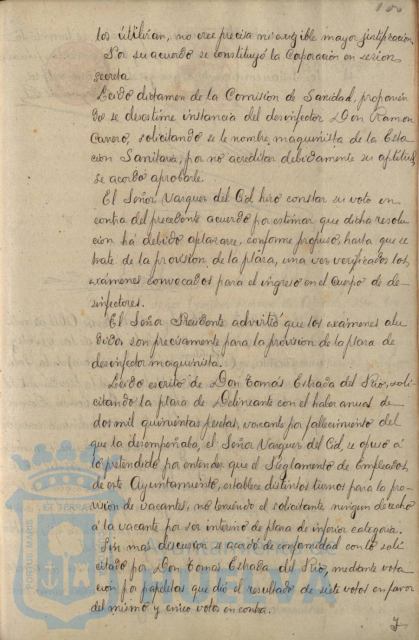 100
los utilizan, no cree precisa ni exigible mayor justificacion
Por su acuerdo se constituyó la Coporacion en sesion
secreta
Leido dictamen de la Comision de Sanidad, proponien
do se desestime instancia del desinfector Don Ramon
Canero, solicitando se le nombre, maquinista de la Esta
cion Sanitaria, por no acreditar debidamente su aptitud,
se acordó aprobarle.
El Señor Vazquez del Cid hizo constar su voto en
contra del precedente acuerdo por estimar que dicha resolu
cion há debido aplazarse, conforme propuso, hasta que se
trate de la provision, de la plaza, una vez verificados los,
exámenes convocados para el ingreso en el Cuerpo de de-
sinfectores.
El Señor Presidente advirtió que los exámenes alu
didos son precisamente para la provision de la plaza de
desinfector maquinista.
Leido escrito de Don Tomás Estrada del Pio, soli
citando la plaza de Delineante con el haber anual de
dos mil quinientas pesetas, vacante por fallecimiento del
que la desempeñaba, el Señor Vazquez del Cid, se opuso á
lo pretendido por entender que el Reglamento de Empleados,
de este Ayuntamiento, establece distintos turnos para la pro-
vision de vacantes, no teniendo el solicitante ningun derecho
á la vacante por ser interino de plaza de inferior categoria.
Sin mas discusion se acordó de conformidad con lo soli
citado por Don Tomás Estrada del Pio, mediante vota
cion por papeletas que dió el resultado de siete votos en favor
del mismo y cinco votos en contra.
PORTUS MARIS
ET TERRAE
HUELVA